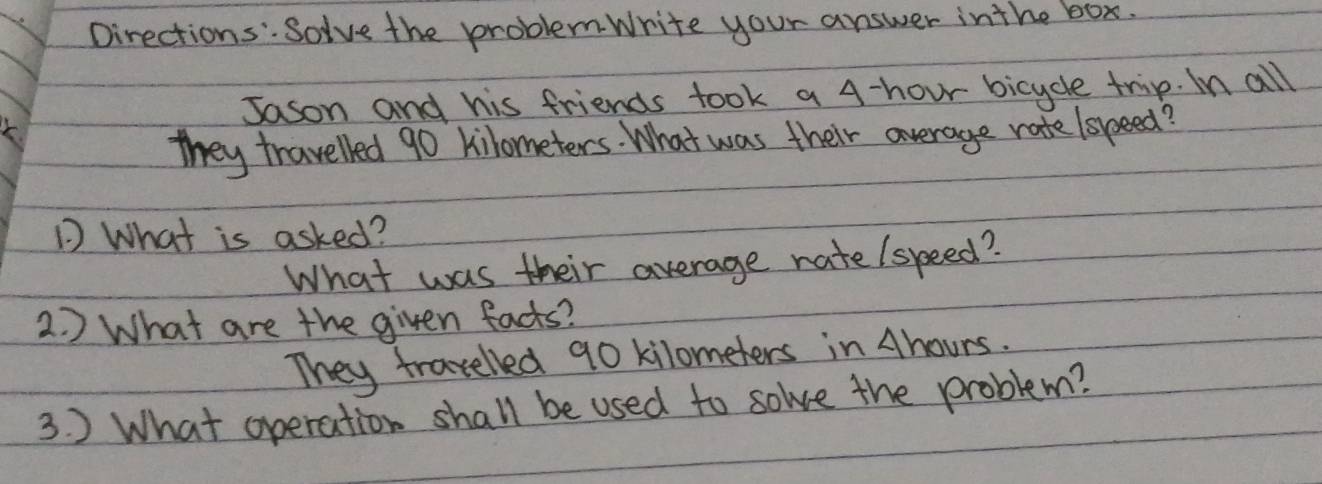 Directions: Solve the problem. Write your answer in the box.
Jason and his friends took a 4-hour bicycle trip. In all
they travelled 90 kilometers. What was their average rate/speed?
1.) What is asked?
What was their average rate/speed?
2.) What are the given facts?
They travelled 90 kilometers in 4 hours.
3.) What operation shall be used to solve the problem?